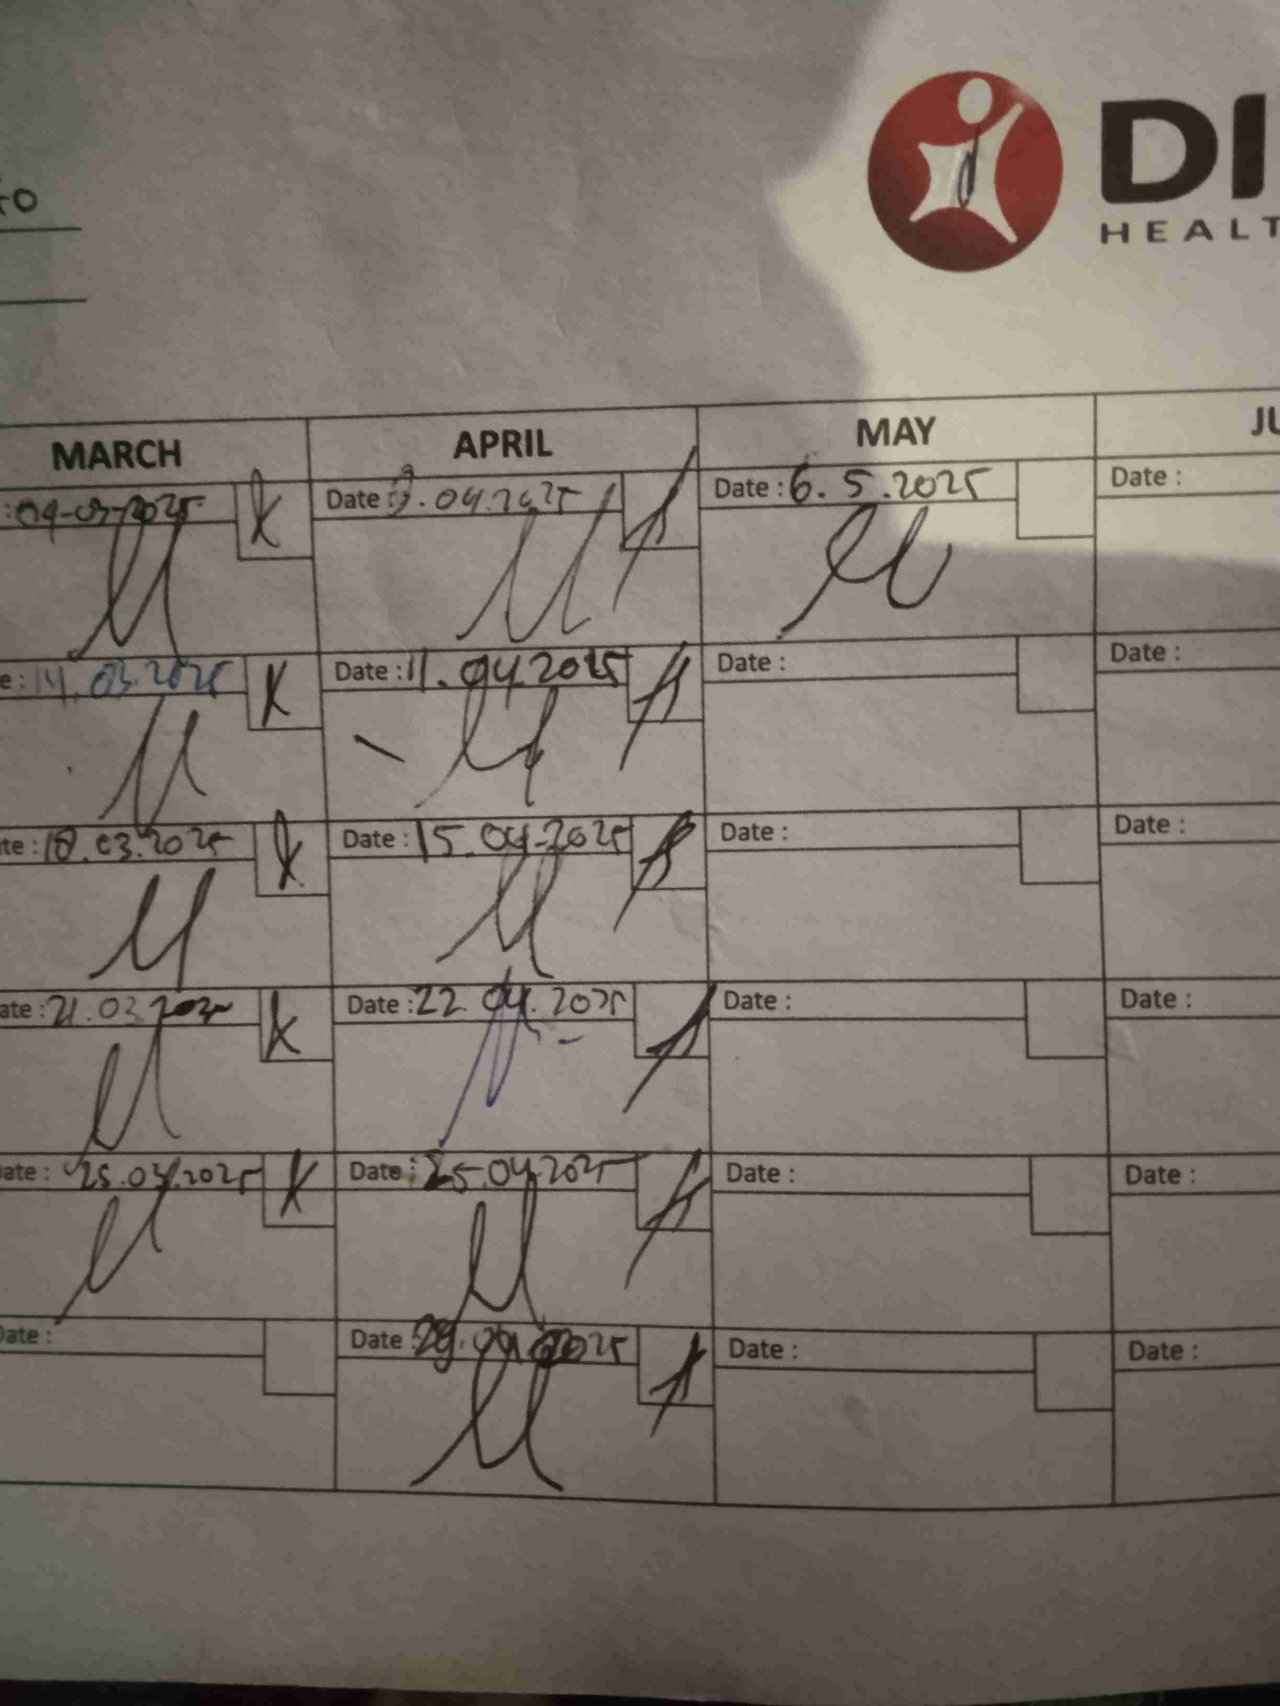 DI
HEALT
MARCH APRIL MAY JU
: 04-03-2025 Date : .04.2025 Date : 6.5.2025 Date :
e : 14.03.2025 Date : 11.04.2025 Date : Date :
te : 18.03.2025 Date : 15.04-2025 Date : Date :
ate : 21.03.2025 Date : 22.04.2025 Date : Date :
ate : 25.03.2025 Date : 25.04.2025 Date : Date :
Date : Date : 29.04.2025 Date : Date :